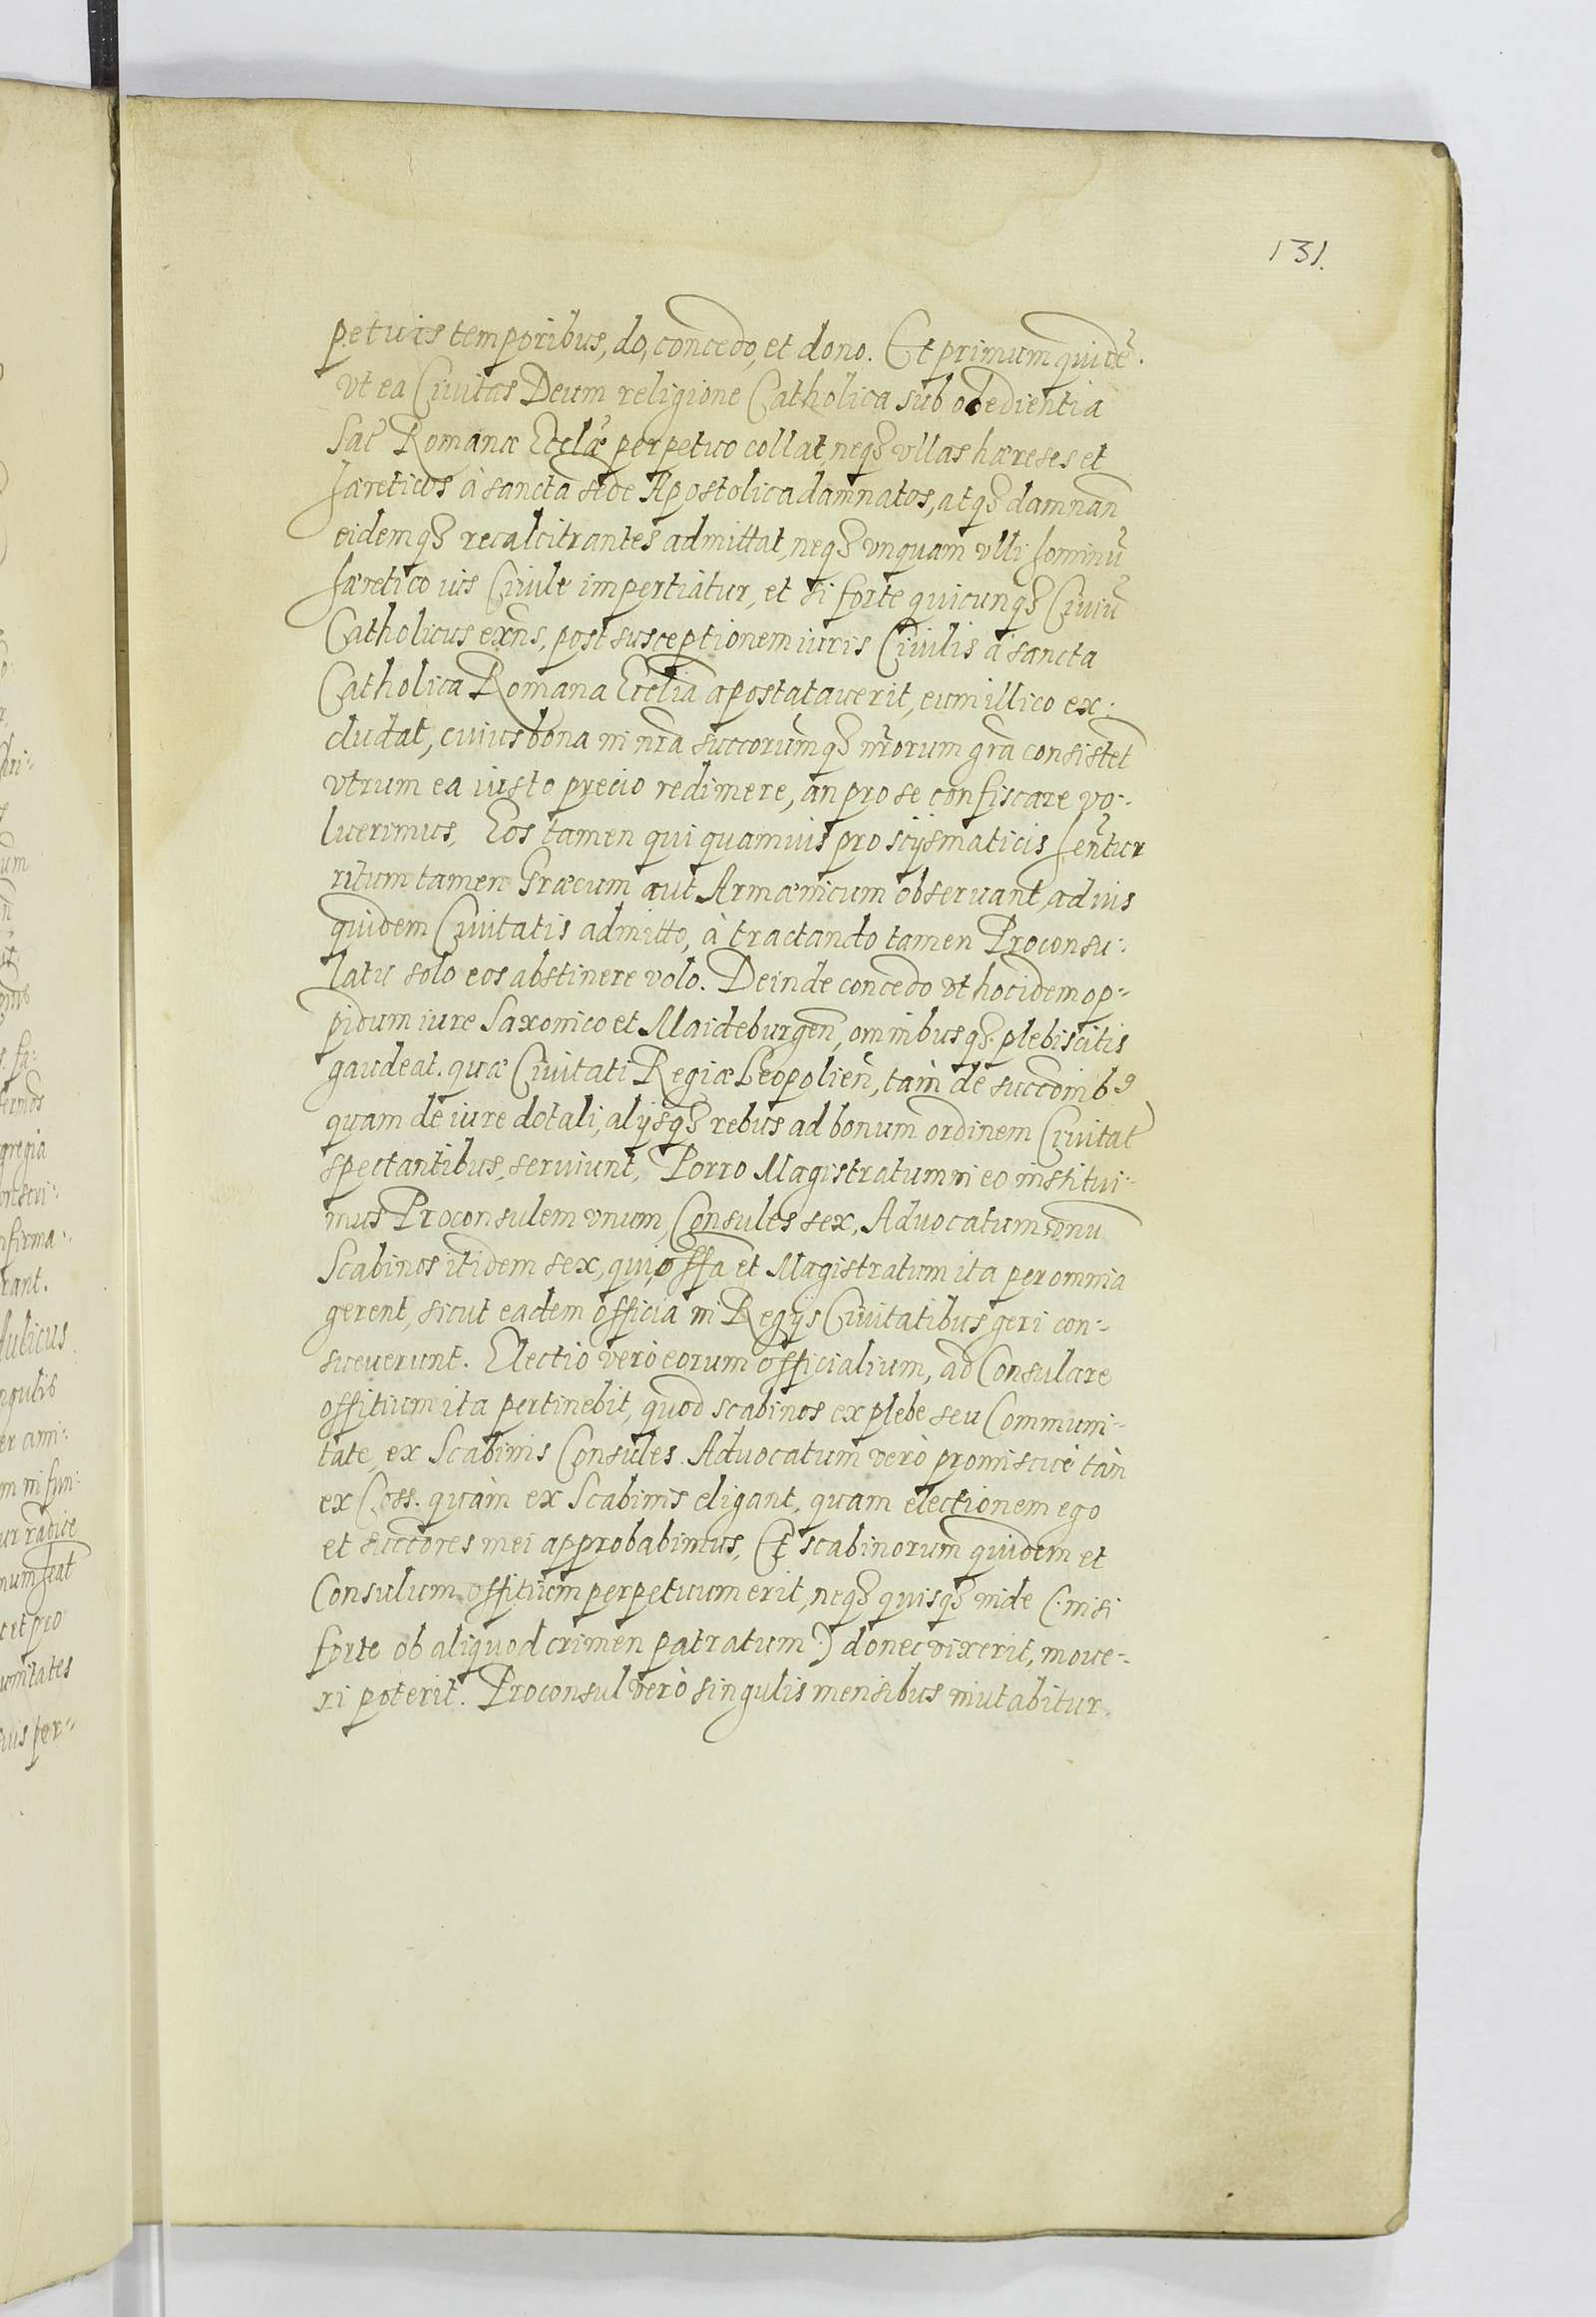 131.
petuis temporibus, do, concedo, et dono. Et primum quidē.
vt ea Ciuitas Deum religione Catholica sub obedientia
Sac̃ Romanæ Eccłæ perpetuo collat, neqȝ vllas hæreses et
hæreticos à sancta sede Apostolica damnatos, atqȝ damnañ
eidemqȝ recalcitrantes admittat, neqȝ vnquam vlli hominū
hæretico ius Ciuile impertiatur, et si forte quicunqȝ Ciuiū
Catholicus exñs, post susceptionem iuris Ciuilis à sancta
Catholica Romana Ecclia apostatauerit, eum illico ex-
cludat, cuius bona in nra succorumqȝ nrorum gra consistet
vtrum ea iusto precio redimere, an pro se confiscare vo-
luerimus, Eos tamen qui quamuis pro scysmaticis hentur
ritum tamen Græcum aut Armænicum obseruant, ad ius
quidem Ciuitatis admitto, à tractando tamen Proconsu-
latu solo eos abstinere volo. Deinde concedo vt hoc idem op-
pidum iure Saxonico et Maideburgeñ, omnibusqȝ plebiscitis
gaudeat. quæ Ciuitati Regiæ Leopolieñ, tam de succonibꝰ
quam de iure dotali, alysqȝ rebus ad bonum ordinem Ciuitat
spectantibus, seruiunt, Porro Magistratum in eo institui-
mus Proconsulem vnum, Consules sex, Aduocatum vnū
Scabinos itidem sex, qui offa et Magistratum ita per omnia
gerent, sicut eadem officia in Regys Ciuitatibus geri con-
sueuerunt. Electio verò eorum officialium, ad Consulare
offitium ita pertinebit, quod scabinos ex plebe seu Communi-
tate, ex Scabinis Consules. Aduocatum verò promiscue tàm
ex Coss. quàm ex Scabinis eligant, quam electionem ego
et succores mei approbabimus, Et scabinorum quidem et
Consulum offitium perpetuum erit, neqȝ quisqȝ inde (: nisi
forte ob aliquod crimen patratum :) donec vixerit, moue-
ri poterit. Proconsul verò singulis mensibus mutabitur.